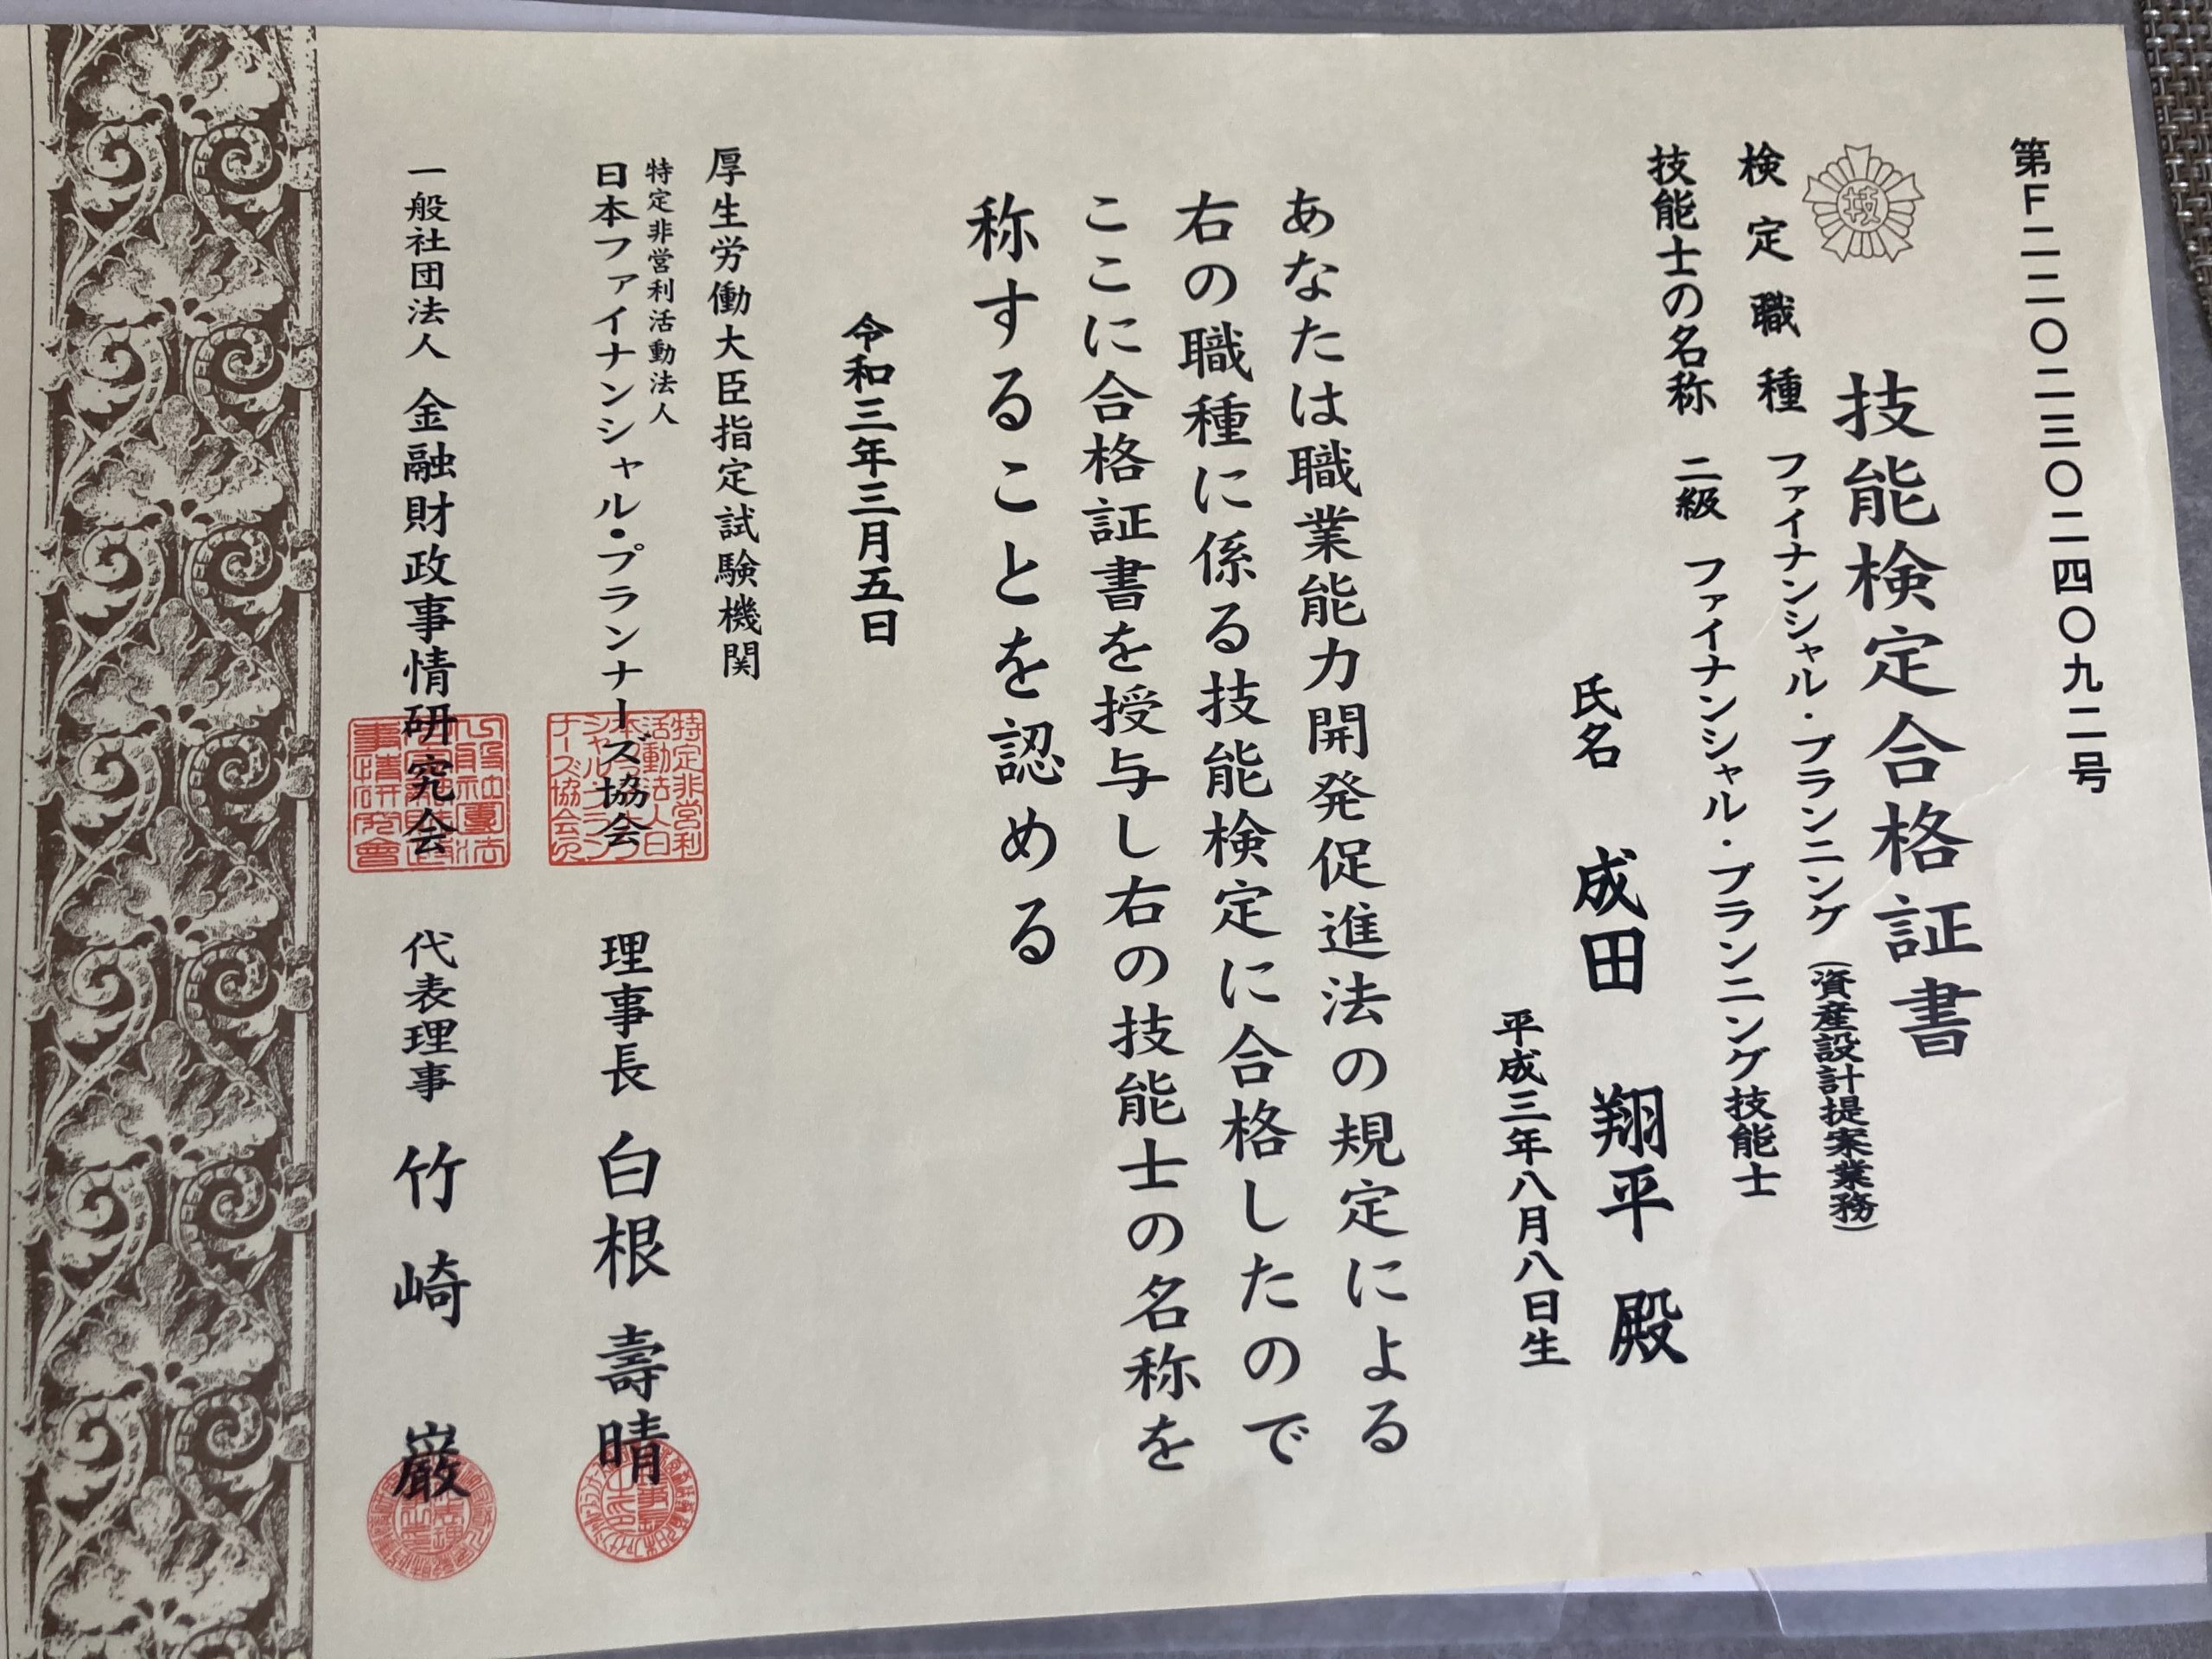 第F二二〇二三〇二四〇九二号
技能検定合格証書
技
検定職種 ファイナンシャル・プランニング(資産設計提案業務)
技能士の名称 二級 ファイナンシャル・プランニング技能士
氏名 成田 翔平 殿
平成三年八月八日生
あなたは職業能力開発促進法の規定による
右の職種に係る技能検定に合格したので
ここに合格証書を授与し右の技能士の名称を
称することを認める
令和三年三月五日
厚生労働大臣指定試験機関
特定非営利活動法人
日本ファイナンシャル・プランナーズ協会 理事長 白根 壽晴
一般社団法人 金融財政事情研究会 代表理事 竹崎 巌